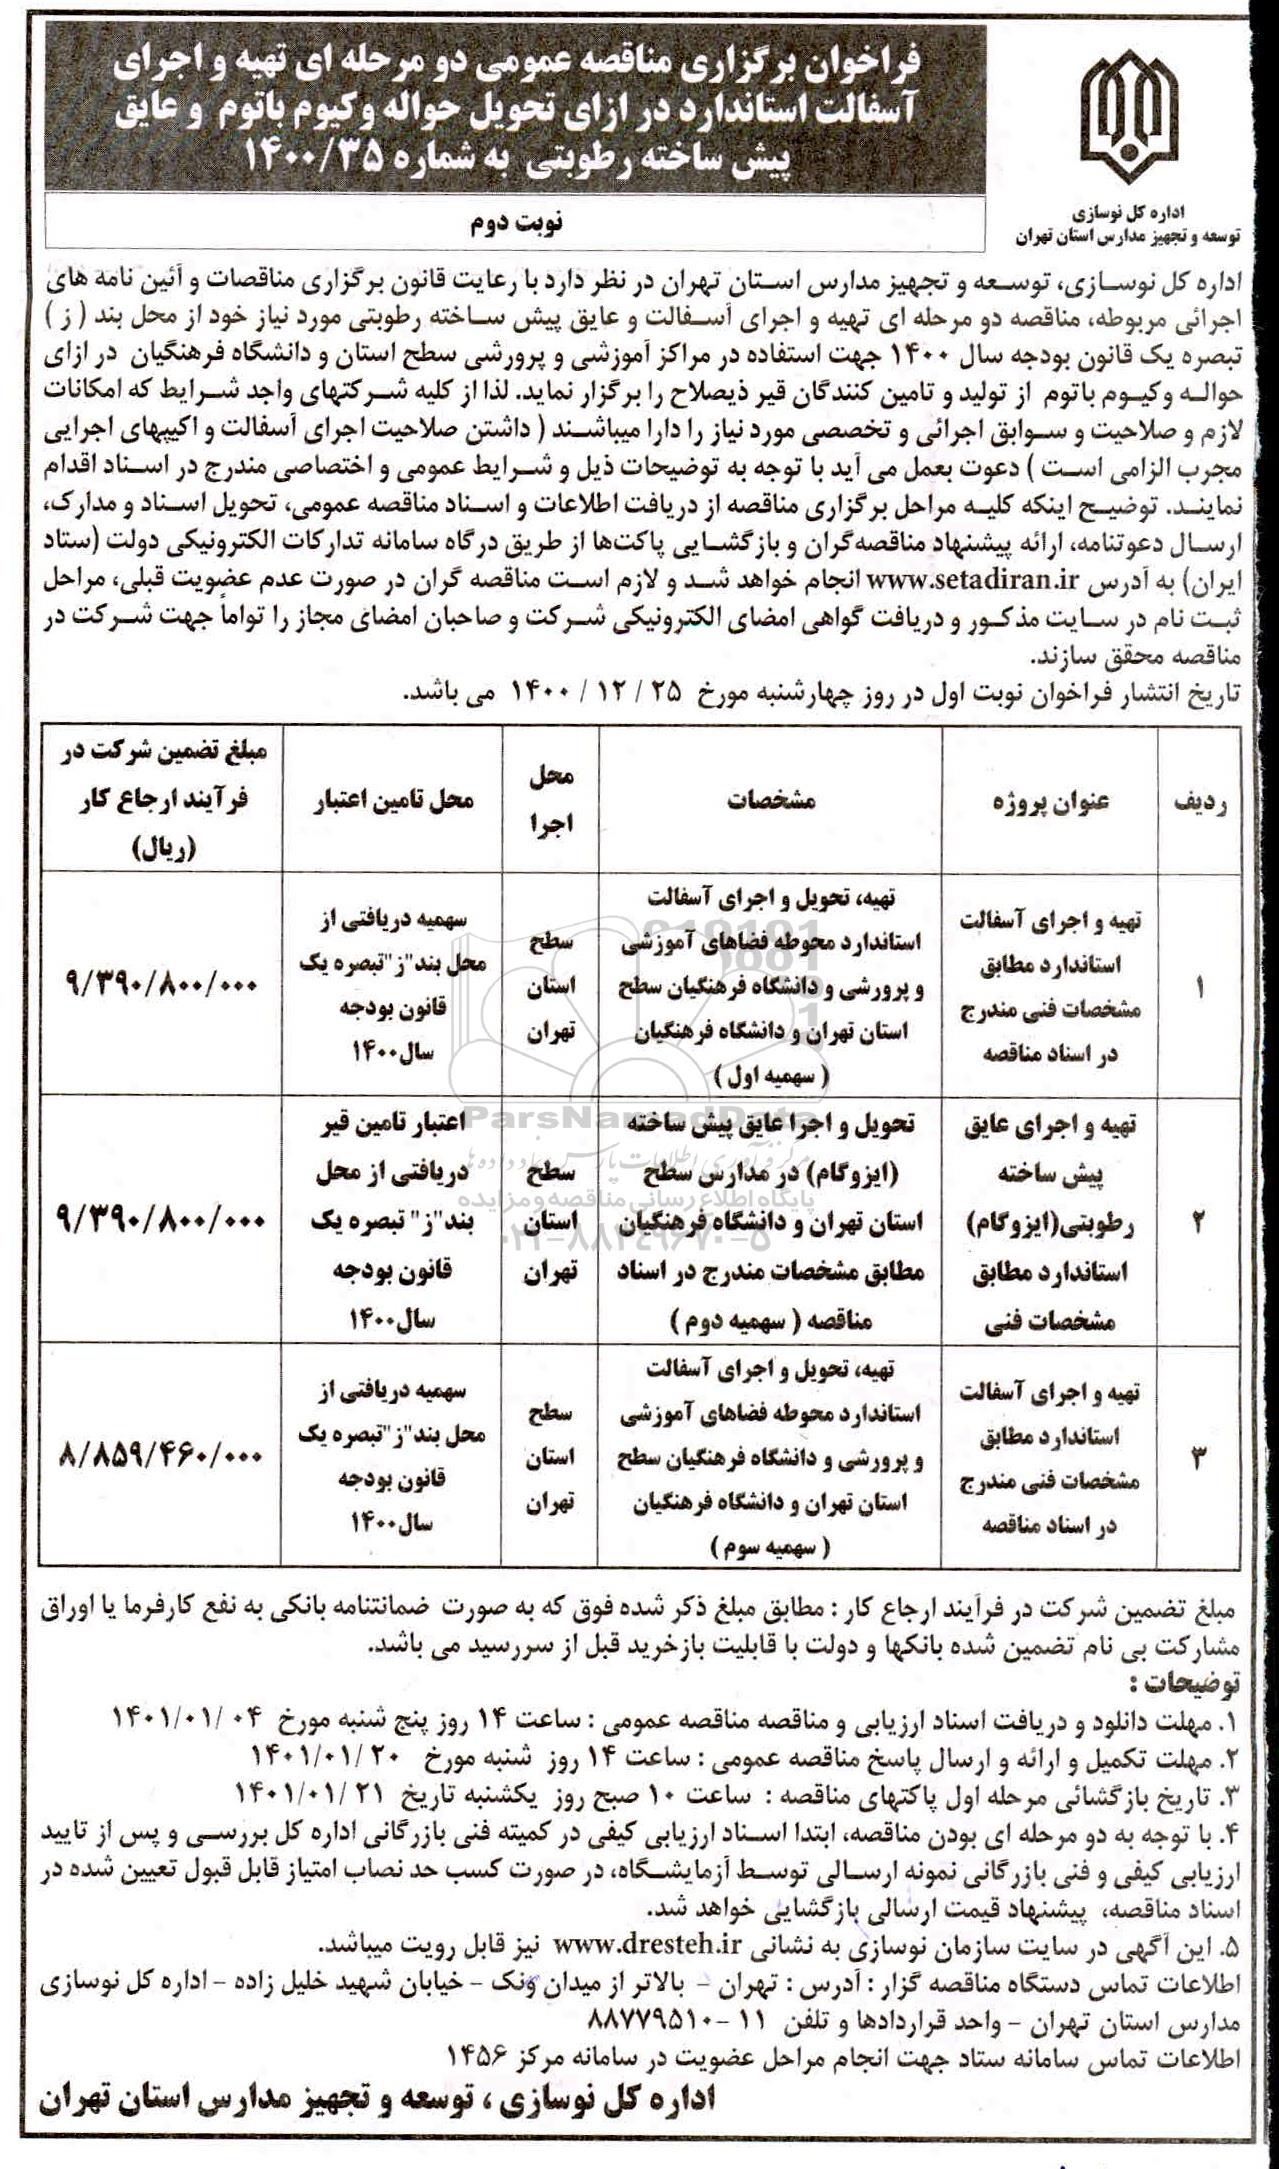 فراخوان برگزاری مناقصه عمومی دو مرحله ای تهیه و اجرای
آسفالت استاندارد در ازای تحویل حواله وکیوم باتوم و عایق
پیش ساخته رطوبتی به شماره ۱۴۰۰/۳۵
اداره کل نوسازی
توسعه و تجهیز مدارس استان تهران
نوبت دوم
اداره کل نوسازی، توسعه و تجهیز مدارس استان تهران در نظر دارد با رعایت قانون برگزاری مناقصات و آئین نامه های
اجرائی مربوطه، مناقصه دو مرحله ای تهیه و اجرای آسفالت و عایق پیش ساخته رطوبتی مورد نیاز خود از محل بند ( ز )
تبصره یک قانون بودجه سال ۱۴۰۰ جهت استفاده در مراکز آموزشی و پرورشی سطح استان و دانشگاه فرهنگیان در ازای
حواله وکیوم باتوم از تولید و تامین کنندگان قیر ذیصلاح را برگزار نماید. لذا از کلیه شرکتهای واجد شرایط که امکانات
لازم و صلاحیت و سوابق اجرائی و تخصصی مورد نیاز را دارا میباشند ( داشتن صلاحیت اجرای آسفالت و اکیپهای اجرایی
مجرب الزامی است ) دعوت بعمل می آید با توجه به توضیحات ذیل و شرایط عمومی و اختصاصی مندرج در اسناد اقدام
نمایند. توضیح اینکه کلیه مراحل برگزاری مناقصه از دریافت اطلاعات و اسناد مناقصه عمومی، تحویل اسناد و مدارک،
ارسال دعوتنامه، ارائه پیشنهاد مناقصه‌گران و بازگشایی پاکت‌ها از طریق درگاه سامانه تدارکات الکترونیکی دولت (ستاد
ایران) به آدرس www.setadiran.ir انجام خواهد شد و لازم است مناقصه گران در صورت عدم عضویت قبلی، مراحل
ثبت نام در سایت مذکور و دریافت گواهی امضای الکترونیکی شرکت و صاحبان امضای مجاز را تواماً جهت شرکت در
مناقصه محقق سازند.
تاریخ انتشار فراخوان نوبت اول در روز چهارشنبه مورخ ۲۵ / ۱۲ / ۱۴۰۰ می باشد.
ردیف
عنوان پروژه
مشخصات
محل
اجرا
محل تامین اعتبار
مبلغ تضمین شرکت در
فرآیند ارجاع کار
(ریال)
۱
تهیه و اجرای آسفالت
استاندارد مطابق
مشخصات فنی مندرج
در اسناد مناقصه
تهیه، تحویل و اجرای آسفالت
استاندارد محوطه فضاهای آموزشی
و پرورشی و دانشگاه فرهنگیان سطح
استان تهران و دانشگاه فرهنگیان
( سهمیه اول )
سطح
استان
تهران
سهمیه دریافتی از
محل بند"ز"تبصره یک
قانون بودجه
سال۱۴۰۰
۹/۳۹۰/۸۰۰/۰۰۰
۲
تهیه و اجرای عایق
پیش ساخته
رطوبتی(ایزوگام)
استاندارد مطابق
مشخصات فنی
تحویل و اجرا عایق پیش ساخته
(ایزوگام) در مدارس سطح
استان تهران و دانشگاه فرهنگیان
مطابق مشخصات مندرج در اسناد
مناقصه ( سهمیه دوم )
سطح
استان
تهران
اعتبار تامین قیر
دریافتی از محل
بند"ز" تبصره یک
قانون بودجه
سال۱۴۰۰
۹/۳۹۰/۸۰۰/۰۰۰
۳
تهیه و اجرای آسفالت
استاندارد مطابق
مشخصات فنی مندرج
در اسناد مناقصه
تهیه، تحویل و اجرای آسفالت
استاندارد محوطه فضاهای آموزشی
و پرورشی و دانشگاه فرهنگیان سطح
استان تهران و دانشگاه فرهنگیان
( سهمیه سوم )
سطح
استان
تهران
سهمیه دریافتی از
محل بند"ز"تبصره یک
قانون بودجه
سال۱۴۰۰
۸/۸۵۹/۴۶۰/۰۰۰
ParsNamadData
مرکز فرآوری اطلاعات پارس نماد داده ها
پایگاه اطلاع رسانی مناقصه و مزایده
۰۲۱-۸۸۳۴۹۶۷۰-۵
مبلغ تضمین شرکت در فرآیند ارجاع کار : مطابق مبلغ ذکر شده فوق که به صورت ضمانتنامه بانکی به نفع کارفرما یا اوراق
مشارکت بی نام تضمین شده بانکها و دولت با قابلیت بازخرید قبل از سررسید می باشد.
توضیحات :
۱. مهلت دانلود و دریافت اسناد ارزیابی و مناقصه مناقصه عمومی : ساعت ۱۴ روز پنج شنبه مورخ ۰۴ /۱۴۰۱/۰۱
۲. مهلت تکمیل و ارائه و ارسال پاسخ مناقصه عمومی : ساعت ۱۴ روز شنبه مورخ ۲۰ /۱۴۰۱/۰۱
۳. تاریخ بازگشائی مرحله اول پاکتهای مناقصه : ساعت ۱۰ صبح روز یکشنبه تاریخ ۲۱ /۱۴۰۱/۰۱
۴. با توجه به دو مرحله ای بودن مناقصه، ابتدا اسناد ارزیابی کیفی در کمیته فنی بازرگانی اداره کل بررسی و پس از تایید
ارزیابی کیفی و فنی بازرگانی نمونه ارسالی توسط آزمایشگاه، در صورت کسب حد نصاب امتیاز قابل قبول تعیین شده در
اسناد مناقصه، پیشنهاد قیمت ارسالی بازگشایی خواهد شد.
۵. این آگهی در سایت سازمان نوسازی به نشانی www.dresteh.ir نیز قابل رویت میباشد.
اطلاعات تماس دستگاه مناقصه گزار : آدرس : تهران – بالاتر از میدان ونک – خیابان شهید خلیل زاده – اداره کل نوسازی
مدارس استان تهران – واحد قراردادها و تلفن ۱۱ –۸۸۷۷۹۵۱۰
اطلاعات تماس سامانه ستاد جهت انجام مراحل عضویت در سامانه مرکز ۱۴۵۶
اداره کل نوسازی ، توسعه و تجهیز مدارس استان تهران